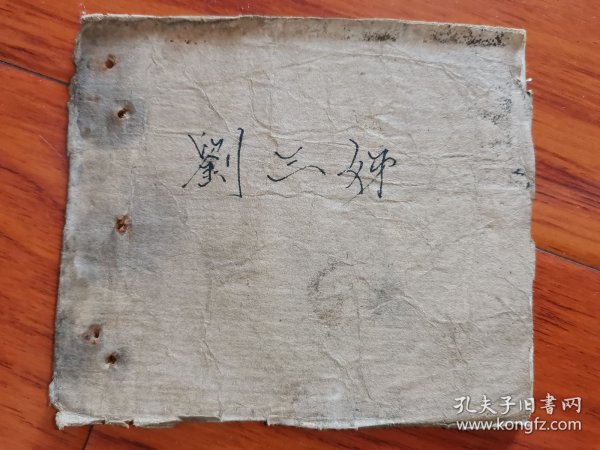 劉三娣
孔夫子旧書网
www.kongfz.com